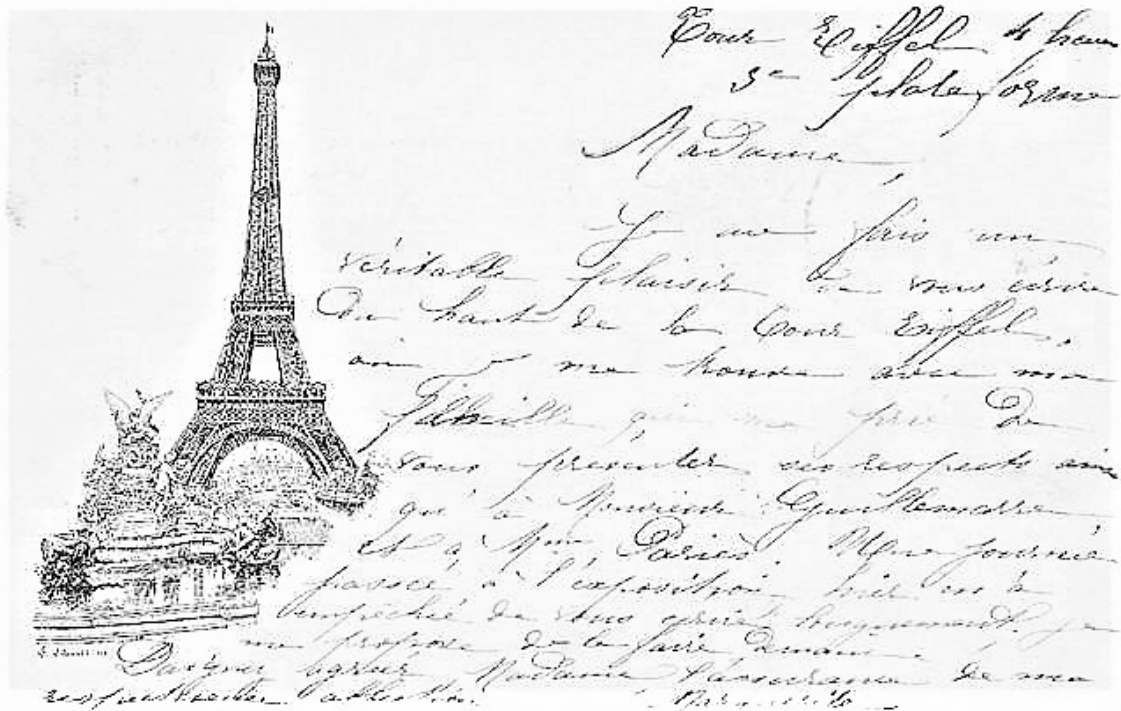 Tour Eiffel 4 heures
3e plateforme
Madame,
Je me fais un
véritable plaisir de vous écrire
du haut de la Tour Eiffel,
où je me trouve avec ma
famille qui me prie de
vous présenter ses respects ainsi
qu'à Monsieur Guillemarre
et à Mme Pariès. Une journée
passée à l'exposition hier m'a
empêché de vous écrire longuement. Je
me propose de le faire demain.
Daignez agréer Madame l'assurance de ma
respectueuse affection.